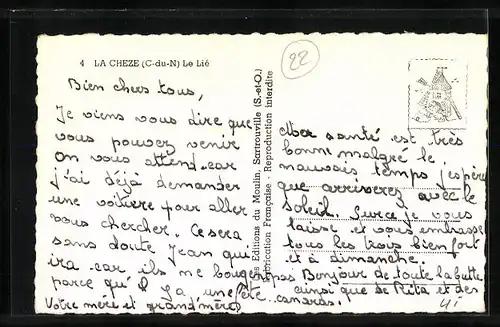 4 LA CHEZE (C-du-N) Le Lié
22
Bien chers tous,
Je viens vous dire que
vous pouvez venir
on vous attend. car
j'ai déjà demander
une voiture pour aller
vous chercher. Ce sera
sans doute Jean qui
ira. car ils ne bougent pas
parce qu'il y a une fête.
Votre mère et grand'mère
Les Editions du Moulin, Sartrouville (S.-et-O.)
Fabrication Française - Reproduction interdite
Mer santé est très
bonne malgré le
mauvais temps j'espère
que arriverez avec le
soleil. Surce je vous
laisse et vous embrasse
tous les trois bien fort
et à dimanche.
Bonjour de toute la butte
ainsi que de Rita et des
camaras.